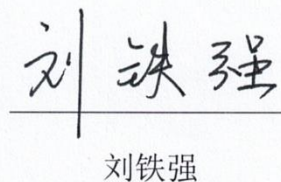 刘铁强
刘铁强